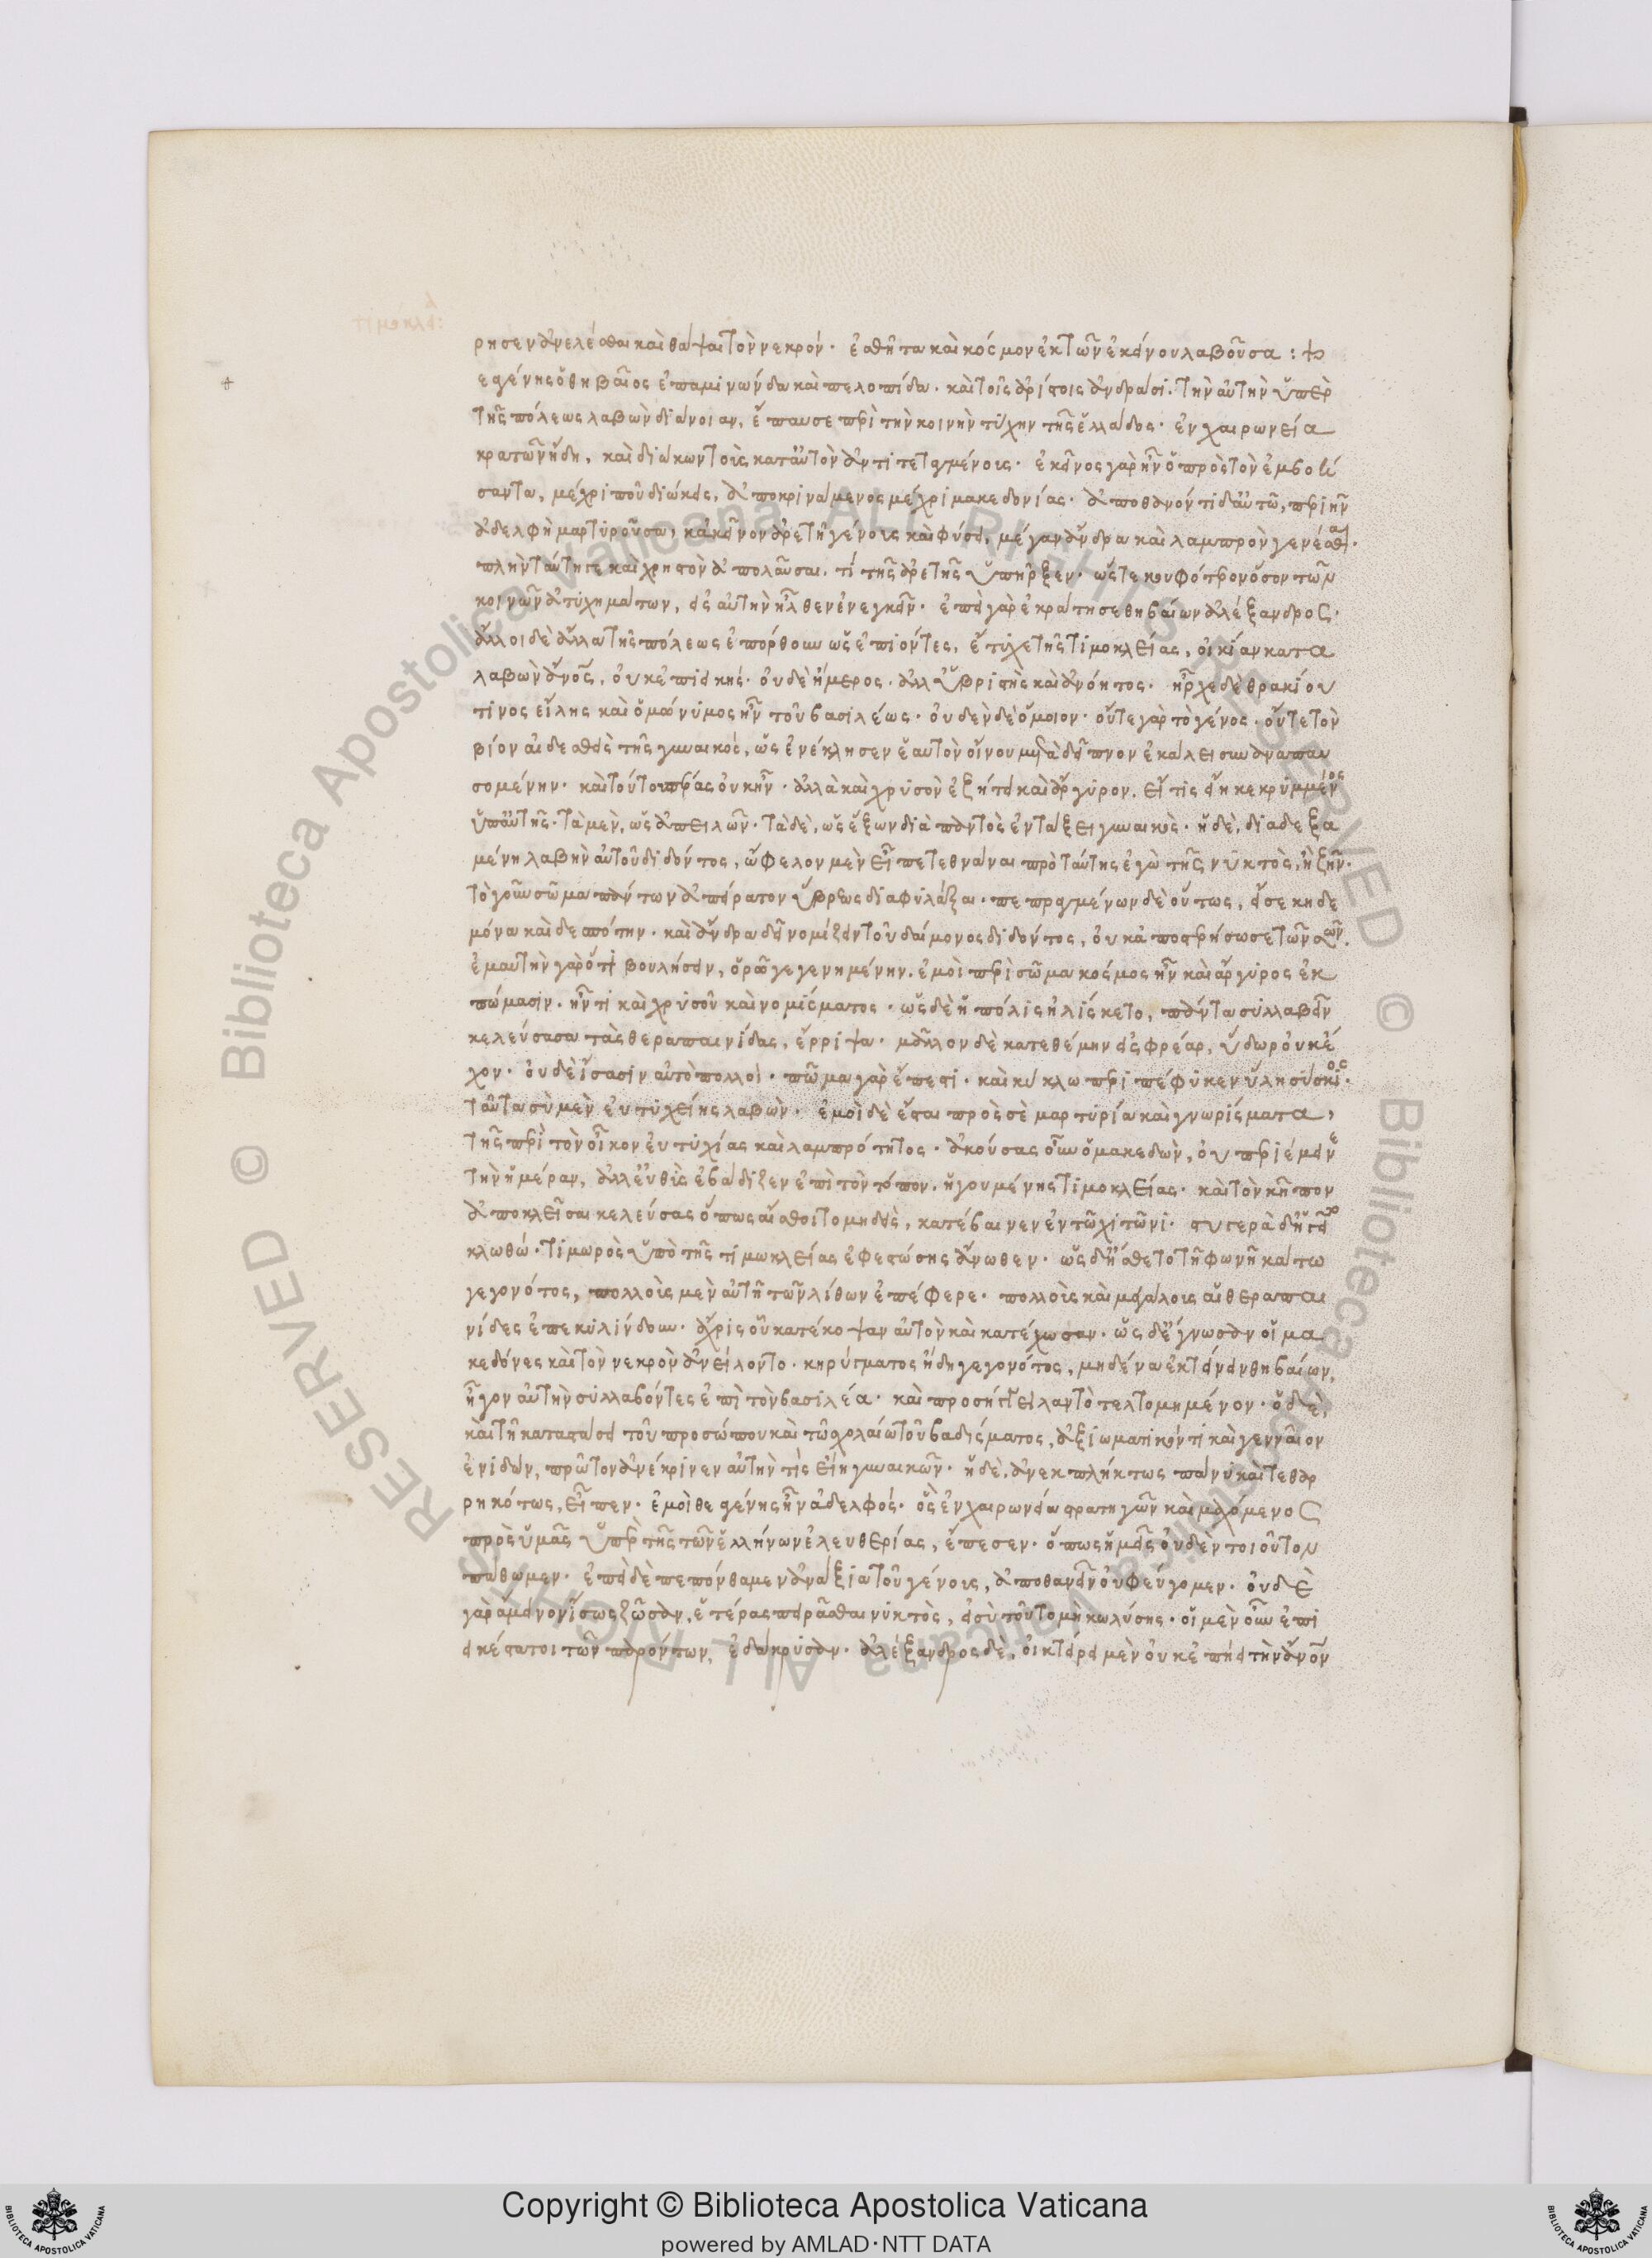 ρησεν ἀνελέσθαι καὶ θάψαι τὸν νεκρόν. ἐσθῆτα καὶ κόσμον ἐκ τῶν ἐκείνου λαβοῦσα :
εαγένης ὁ θηβαῖος ἐπαμινώνδα καὶ πελοπίδα. καὶ τοῖς ἀρίστοις ἀνδράσι. τὴν αὐτὴν ὑπὲρ
τῆς πόλεως λαβὼν διάνοιαν, ἔπαυσε περὶ τὴν κοινὴν τύχην τῆς ἑλλάδος. ἐν χαιρωνεία
κρατῶν ἤδη, καὶ διώκων τοὺς κατ' αὐτὸν ἀντιτεταγμένους. ἐκεῖνος γὰρ ἦν ὁ πρὸς τὸν ἐμβοή
σαντα, μέχρι ποῦ διώκεις, ἀποκρινάμενος μέχρι μακεδονίας. ἀποθανόντι δ' αὐτῶ, περιῆν
ἀδελφὴ μαρτυροῦσα, κἀκεῖνον ἀρετῆ γένους καὶ φύσει, μέγαν ἄνδρα καὶ λαμπρὸν γενέσθαι.
πλὴν ταύτη γε καὶ χρηστὸν ἀπολαῦσαι. τί τῆς ἀρετῆς ὑπῆρξεν. ὥστε κουφότερον ὅσον τῶν
κοινῶν ἀτυχημάτων, εἰς αὐτὴν ἦλθεν ἐνεγκεῖν. ἐπεὶ γὰρ ἐκράτησε θηβαίων ἀλέξανδρος.
ἄλλοι δὲ ἄλλα τῆς πόλεως ἐπόρθουν ὡς ἐπιόντες, ἔτυχε τῆς τιμοκλείας, οἰκίαν κατα
λαβὼν ἄνος, οὐκ ἐπιεικής. οὐδὲ ἥμερος. ἀλλ' ὑβριστὴς καὶ ἀνόητος. ἦρχε δὲ θρακίου
τινος εἴλης καὶ ὁμώνυμος ἦν τοῦ βασιλέως. οὐδὲν δὲ ὅμοιον. οὔτε γὰρ τὸ γένος. οὔτε τὸν
βίον αἰδεσθεὶς τῆς γυναικός, ὡς ἐνέπλησεν ἑαυτὸν οἴνου μετὰ δεῖπνον ἐκάλει συναναπαυ
σομένην. καὶ τοῦτο πέρας οὐκ ἦν. ἀλλὰ καὶ χρυσὸν ἐζήτει καὶ ἄργυρον. εἴ τις εἴη κεκρυμμένος
ὑπ' αὐτῆς. τὰ μὲν, ὡς ἀπειλῶν. τὰ δὲ, ὡς ἕξων διὰ παντὸς ἐν τάξει γυναικὸς. ἡ δὲ, δεξα
μένη λαβὴν αὐτοῦ διδόντος, ὤφελον μὲν εἶπε τεθνάναι πρὸ ταύτης ἐγὼ τῆς νυκτὸς, ἢ ζῆν.
τὸ γοῦν σῶμα πάντων ἀπείρατον ὕβρεως διαφυλάξαι. πεπραγμένων δὲ οὕτως, εἴ σε κηδε
μόνα καὶ δεσπότην. καὶ ἄνδρα δεῖ νομίζειν τοῦ δαίμονος διδόντος, οὐκ ἀποστερήσω σε τῶν σῶν.
ἐμαυτὴν γὰρ ὅτι βούλη σὺ, ὁρῶ γεγενημένην. ἐμοὶ περὶ σῶμα κόσμος ἦν καὶ ἄργυρος ἐκ
πώμασιν. ἦν τι καὶ χρυσοῦ καὶ νομίσματος. ὡς δὲ ἡ πόλις ἡλίσκετο, πάντα συλλαβεῖν
κελεύσασα τὰς θεραπαινίδας, ἔρριψα. μᾶλλον δὲ κατεθέμην εἰς φρέαρ, ὕδωρ οὐκ ἔ
χον. οὐδὲ ἴσασιν αὐτὸ πολλοὶ. πῶμα γὰρ ἔπεστι. καὶ κύκλω περιπέφυκεν ὕλη σύσκιος.
ταῦτα σὺ μὲν εὐτυχείης λαβὼν. ἐμοὶ δὲ ἔσται πρὸς σὲ μαρτύρια καὶ γνωρίσματα,
τῆς περὶ τὸν οἶκον εὐτυχίας καὶ λαμπρότητος. ἀκούσας οὖν ὁ μακεδὼν, οὐ περιέμεινε
τὴν ἡμέραν, ἀλλ' εὐθὺς ἐβάδιζεν ἐπὶ τὸν τόπον. ἡγουμένης τιμοκλείας. καὶ τὸν κῆπον
ἀποκλεῖσαι κελεύσας ὅπως αἴσθοιτο μηδεὶς, κατέβαινεν ἐν τῶ χιτῶνι. στυγερὰ δ' ἡγεῖτο
κλωθώ. τιμωρὸς ὑπὸ τῆς τιμωκλείας ἐφεστώσης ἄνωθεν. ὡς δ' ἤσθετο τῆ φωνῆ κάτω
γεγονότος, πολλοὺς μὲν αὐτὴ τῶν λίθων ἐπέφερε. πολλοὺς καὶ μεγάλους αἱ θεραπαι
νίδες ἐπεκυλίνδουν. ἄχρις οὗ κατέκοψαν αὐτὸν καὶ κατέχωσαν. ὡς δ' ἔγνωσαν οἱ μα
κεδόνες καὶ τὸν νεκρὸν ἀνείλοντο. κηρύγματος ἤδη γεγονότος, μηδένα κτείνειν θηβαίων,
ἦγον αὐτὴν συλλαβόντες ἐπὶ τὸν βασιλέα. καὶ προσήγγειλαν τὸ τετολμημένον. ὁ δὲ,
καὶ τῆ καταστάσει τοῦ προσώπου καὶ τῶ σχολαίω τοῦ βαδίσματος, ἀξιωματικόν τι καὶ γενναῖον
ἐνιδὼν, πρῶτον ἀνέκρινεν αὐτὴν τίς εἴη γυναικῶν. ἡ δὲ, ἀνεκπλήκτως πάνυ καὶ τεθαρ
ρηκότως, εἶπεν. ἐμοὶ θεαγένης ἦν ἀδελφός. ὃς ἐν χαιρωνεία στρατηγῶν καὶ μαχόμενος
πρὸς ὑμᾶς ὑπὲρ τῆς τῶν ἑλλήνων ἐλευθερίας, ἔπεσεν. ὅπως ἡμεῖς οὐδὲν τοιοῦτον
πάθωμεν. ἐπεὶ δὲ πεπόνθαμεν ἀνάξια τοῦ γένους, ἀποθανεῖν οὐ φεύγομεν. οὐδὲ
γὰρ ἄμεινον ἴσως ζῶσαν, ἑτέρας πειρᾶσθαι νυκτὸς, εἰ σὺ τοῦτο μὴ κωλύσης. οἱ μὲν οὖν ἐπι
εικέστατοι τῶν παρόντων, ἐδάκρυσαν. ἀλέξανδρος δὲ, οἰκτείρειν μὲν οὐκ ἐπήει τὴν ἄνον